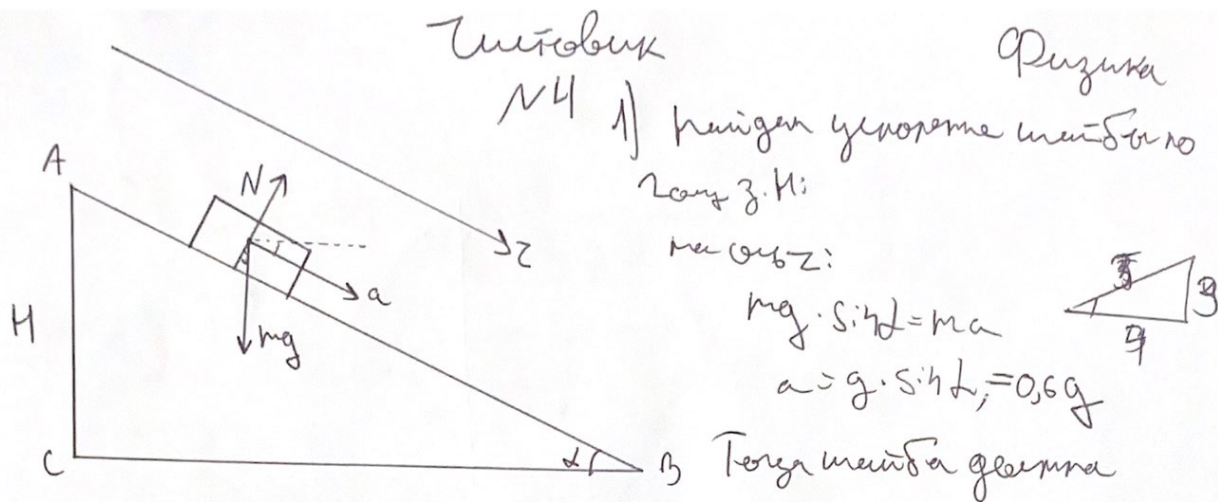 Чистовик
Физика
№4
1) Найдем ускорение шайбы по
2ому з.Н:
на ось z:
mg · sin α = ma
a = g · sin α, = 0,6g
Тогда шайба должна
A
N
z
a
mg
H
C
α
B
5
3
4